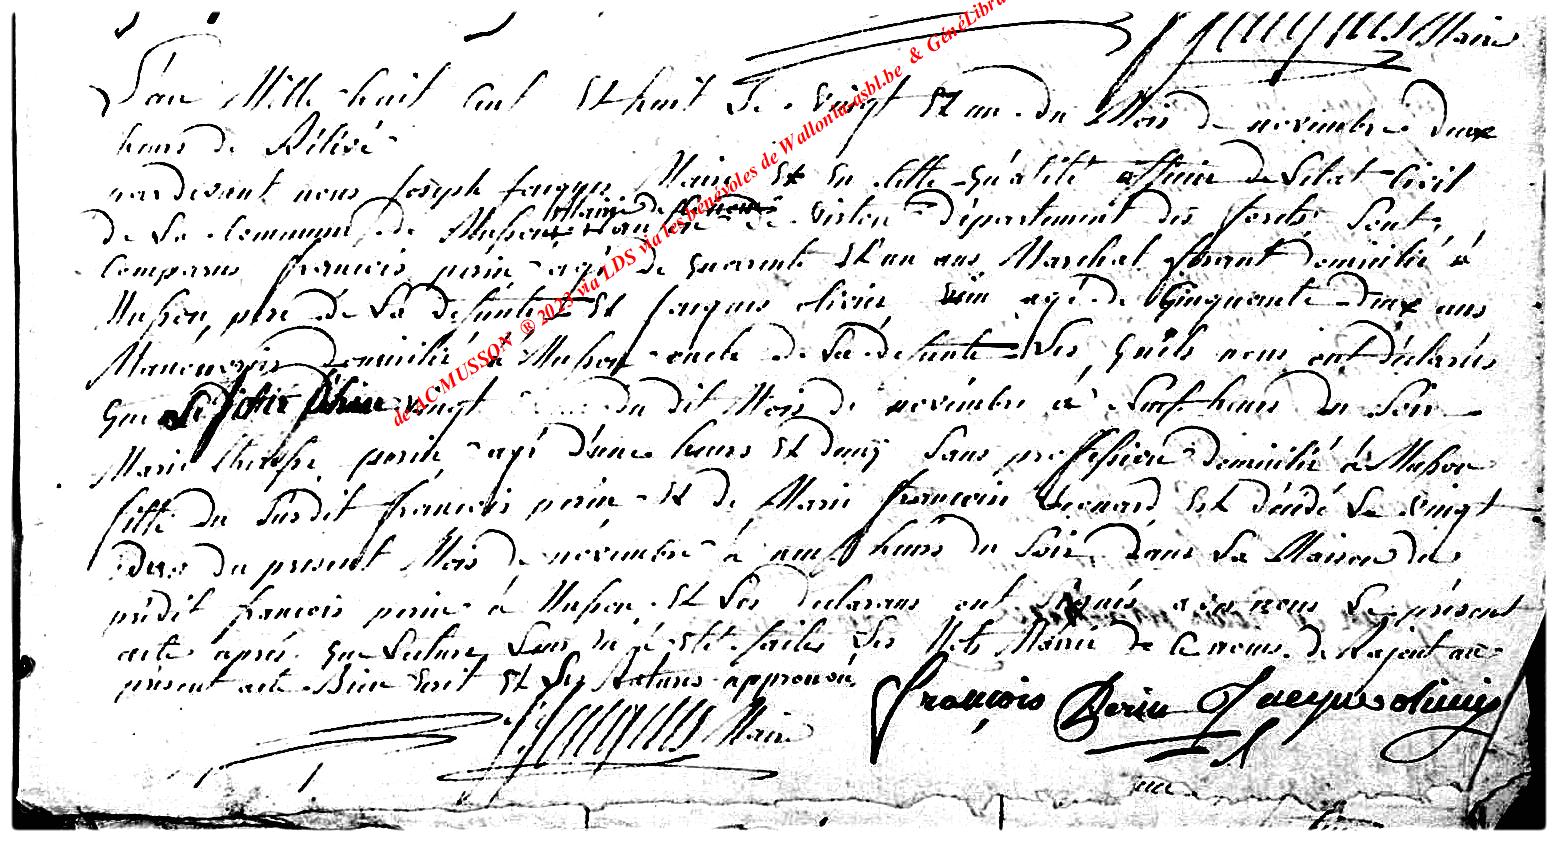 Maire
L'an Mille huit cent Et huit Le vingt Et un du Mois de novembre deux
heurs de Rélévé
pardevant nous Joseph Jacques Maire Et En cette Qualité officier de L'état Civil
Mairie de ce nom
de La Commune de Musson canton de virton département des forêts Sont
Comparus françois perin agé de quarante Et un ans Marchal férant domicilié à
Musson, pere de La défunte Et Jacques olivier agé de Cinquante deux ans
Manoeuvris domicilié à Musson oncle de La défunte Les Quels nous ont déclarés
Que vingt du dit Mois de novémbre à heurs du Soir
Marie thérèse perin agé d'une heurs Et demy Sans profession domicilié à Musson
fille du Surdit françois perin Et de Marie françoise Leonard Est décédé Le vingt
du present Mois de novémbre à neuf heurs du Soir dans La Maison du
prédit françois perin à Musson Et Les declarans ont signés avec nous Le présent
acte après Que Lecture Leur En é Esté faites Les Mots Mairie de Ce nom de Rajout au
présent acte Bien Ecrit Et Les Ratures approuvé
françois Perin Jacque olivier
J Jacques Maire
de ACMUSSON ® 2023 via LDS via les bénévoles de Wallonia-asbl.be & GénéLibra